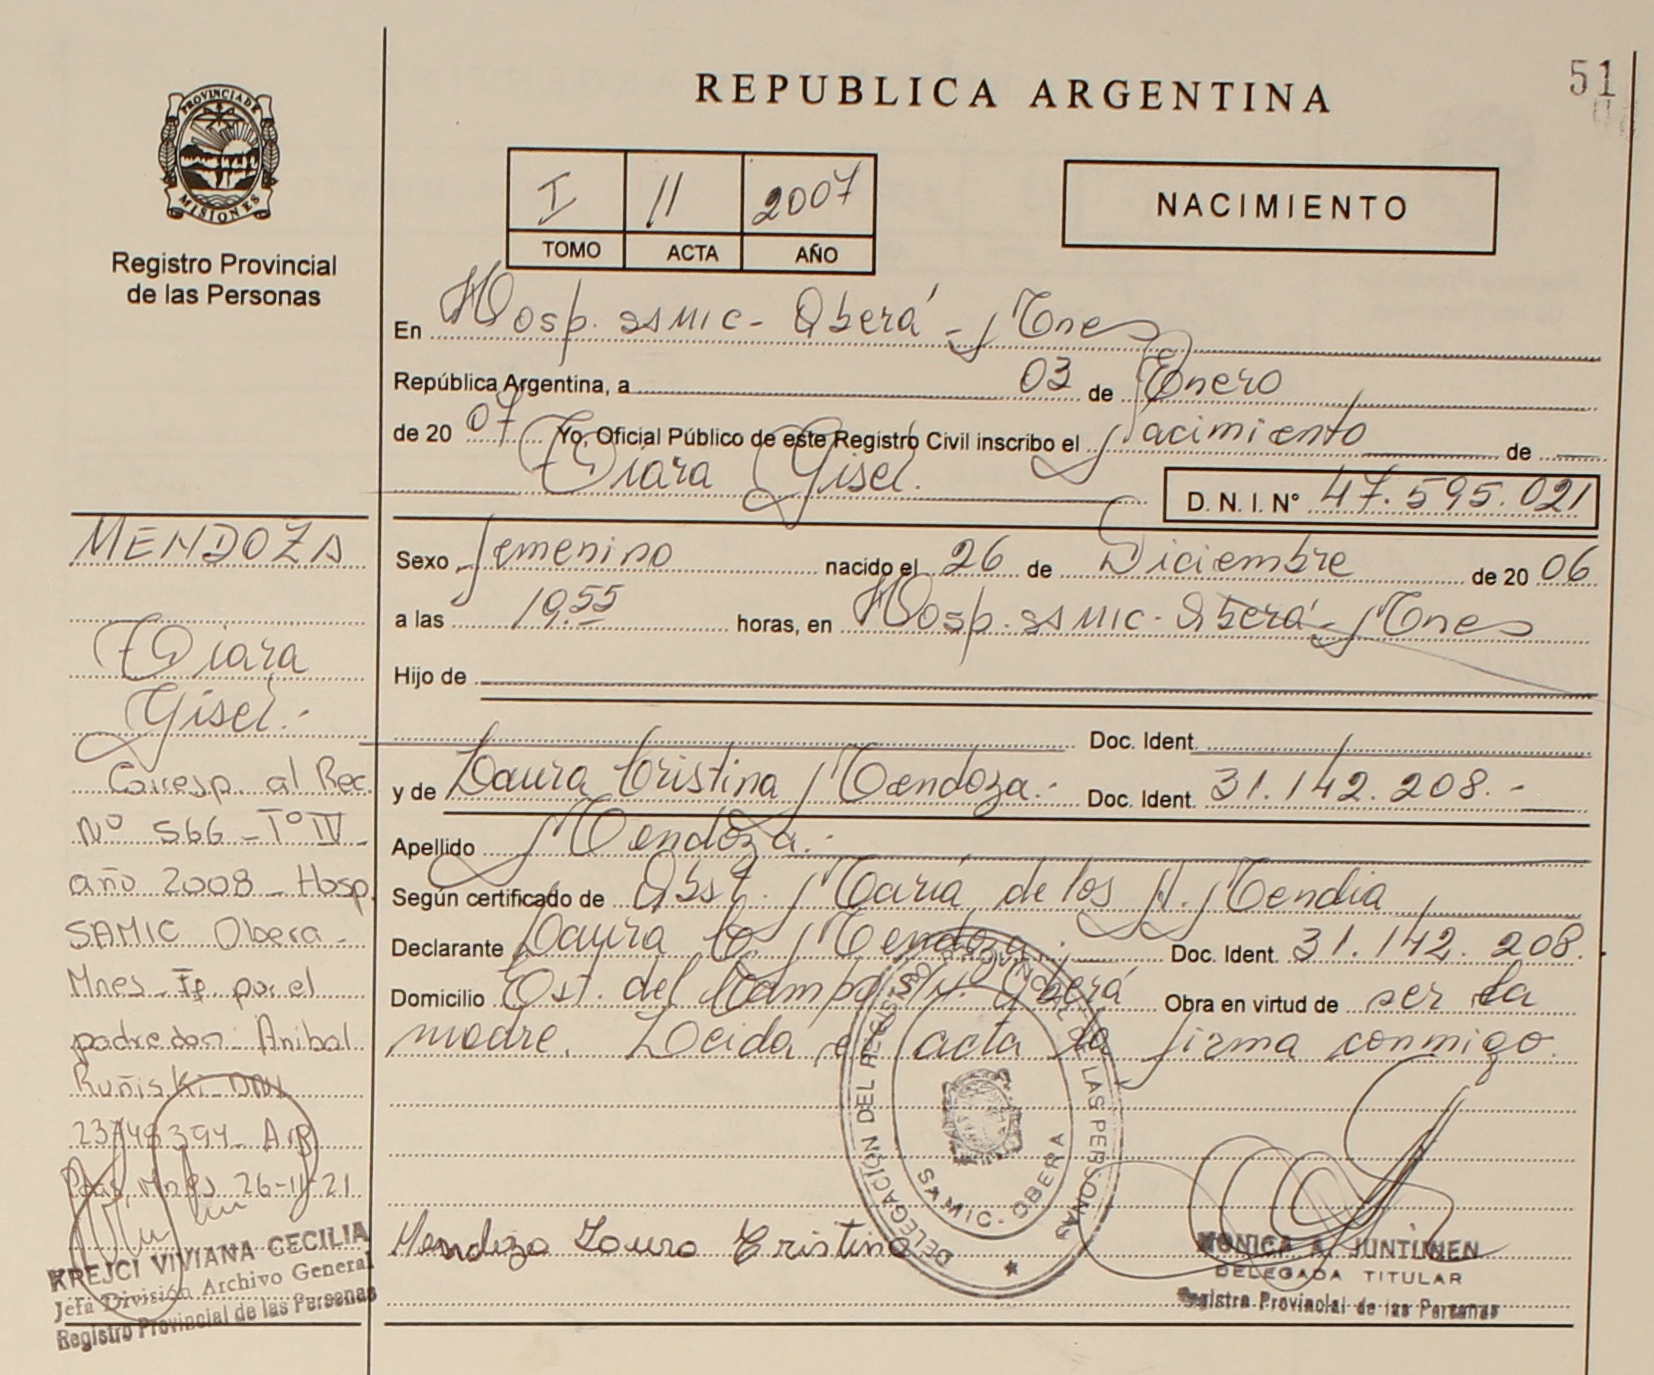 REPUBLICA ARGENTINA
51
PROVINCIA DE
MISIONES
Registro Provincial
de las Personas
I 11 2007
TOMO ACTA AÑO
NACIMIENTO
En Hosp. SAMIC - Oberá - Mnes
República Argentina, a 03 de Enero
de 20 07 Yo, Oficial Público de este Registro Civil inscribo el Nacimiento de
Gisel. D. N. I. Nº 47.595.021
Sexo femenino nacido el 26 de Diciembre de 20 06
a las 19.55 horas, en Hosp. SAMIC - Oberá - Mnes
Hijo de
Doc. Ident.
y de Laura Cristina Mendoza.- Doc. Ident. 31.142.208.-
Apellido Mendoza.-
Según certificado de Obst. María de los A. Mendia
Declarante Laura C. Mendoza.- Doc. Ident. 31.142.208.
Domicilio Ost. del Campo Oberá Obra en virtud de ser la
madre. Leída el acta la firma conmigo.
MENDOZA
Gisel.-
Corresp. al Rec.
Nº 566 - Tº IV
año 2008 - Hosp.
SAMIC Obera -
Mnes - por el
padre don Anibal
Ruñiski - DNI
Pdas, Mnes 26-11-21
KREJCI VIVIANA CECILIA
Jefa División Archivo General
Registro Provincial de las Personas
Mendoza Laura Cristina
DELEGACIÓN DEL REGISTRO PROVINCIAL DE LAS PERSONAS
SAMIC - OBERA
MONICA A. JUNTUNEN
DELEGADA TITULAR
Registro Provincial de las Personas